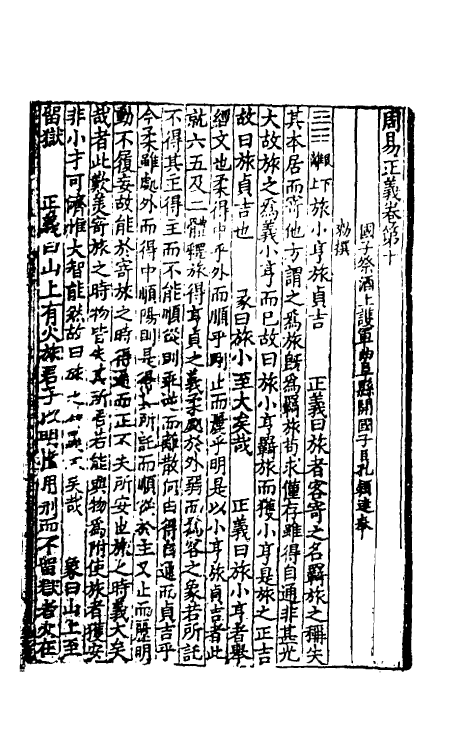 周易正義卷第十
國子祭酒上護軍曲阜縣開國子臣孔穎達奉
勑撰
䷷艮下離上旅小亨旅貞吉　正義曰旅者客寄之名羈旅之稱失
其本居而寄他方謂之爲旅旣爲羈旅苟求僅存雖得自通非其光
大故旅之爲義小亨而已故曰旅小亨羈旅而獲小亨是旅之正吉
故曰旅貞吉也　彖曰旅小至大矣哉　正義曰旅小亨者舉
經文也柔得中乎外而順乎剛止而麗乎明是以小亨旅貞吉者此
就六五及二體釋旅得亨貞之義柔處於外弱而爲客之象若所託
不得其主得主而不能順從則乖逆而離散何由得自通而貞吉乎
今柔雖處外而得中順陽則是得其所託而順從於主又止而麗明
動不履妄故能於寄旅之時得通而正不失所安也旅之時義大矣
哉者此歎美寄旅之時物皆失其所居若能與物爲附使旅者獲安
非小才可濟惟大智能然故曰旅之時義大矣哉　象曰山上至
留獄　正義曰山上有火旅君子以明慎用刑而不留獄者火在